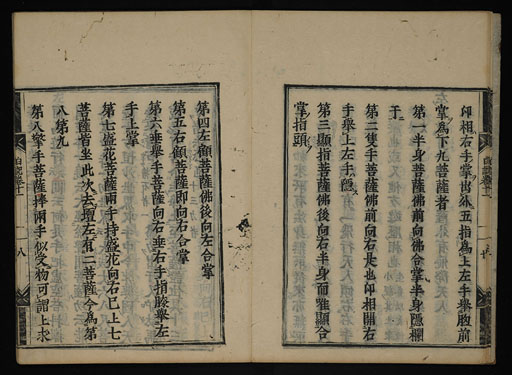 仰相右手掌出外五指為上左手舉腹前
掌為下九菩薩者
第一半身菩薩佛前向佛合掌半身隱欄
于
第二雙手菩薩佛前向右是也仰相開右
手舉上左手隱
第三顯指菩薩佛後向右半身而雖顯合
掌指頭
第四左顧菩薩佛後向左合掌
第五右顧菩薩即向右合掌
第六垂手菩薩向右垂右手指膝舉左
手上掌
第七盛花菩薩兩手持盛花向右已上七
菩薩皆坐此次去壇左有二菩薩今為第
八第九
第八擎手菩薩捧兩手似受物可謂上求
八